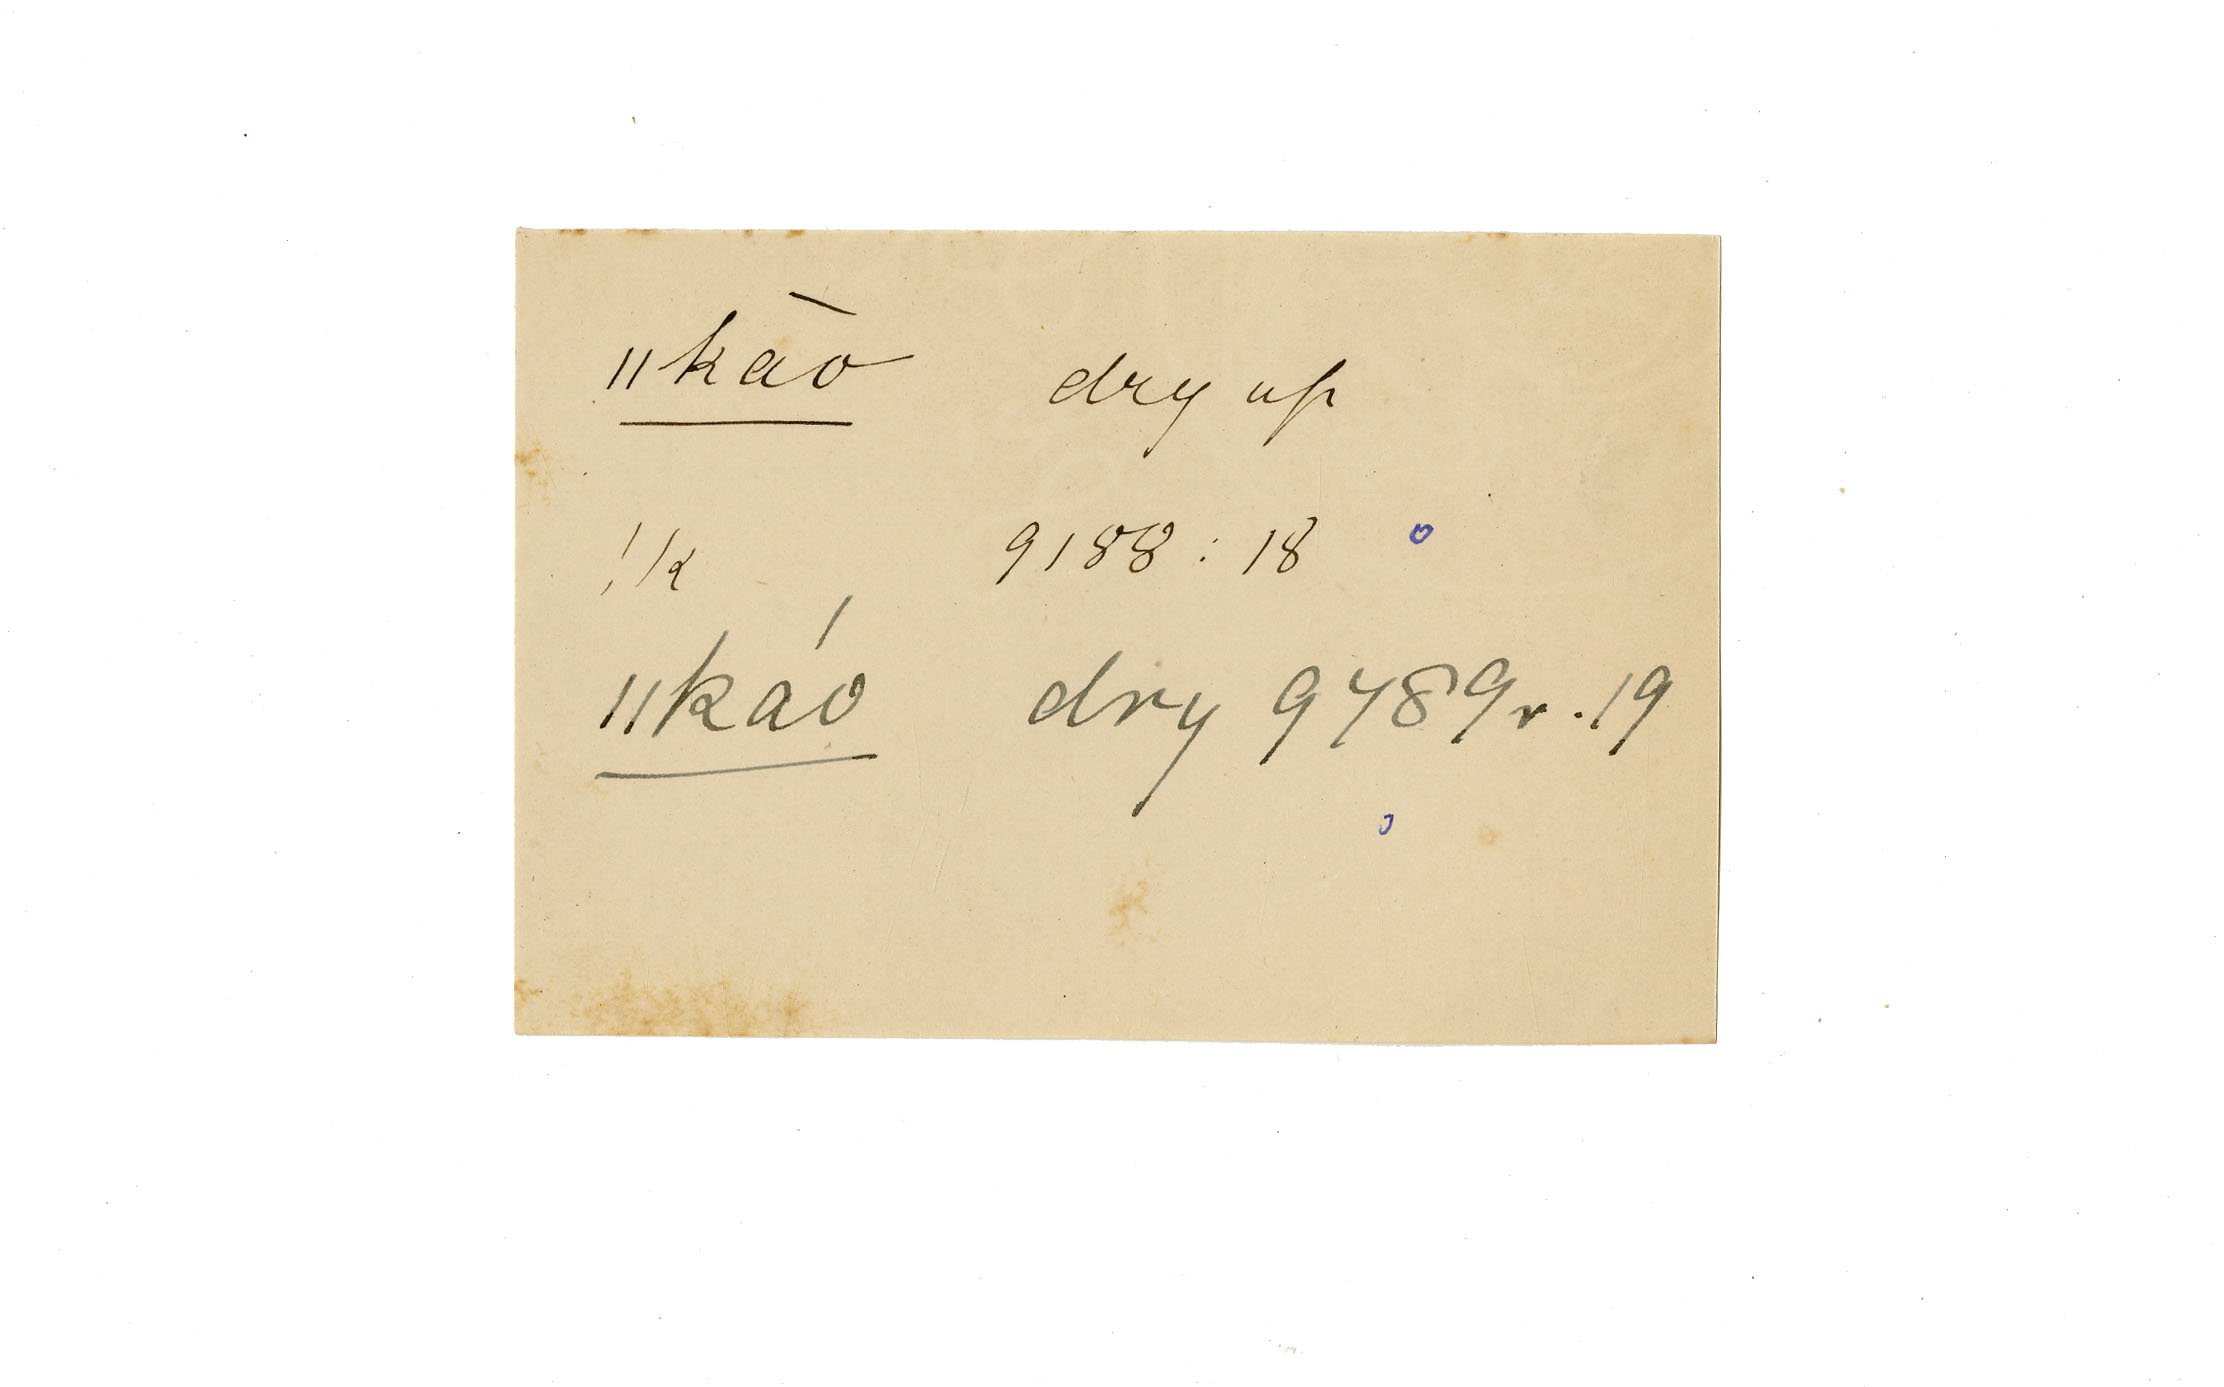 ǁkào dry up
!k 9188 : 18
ǁkáo dry 9489 r. 19